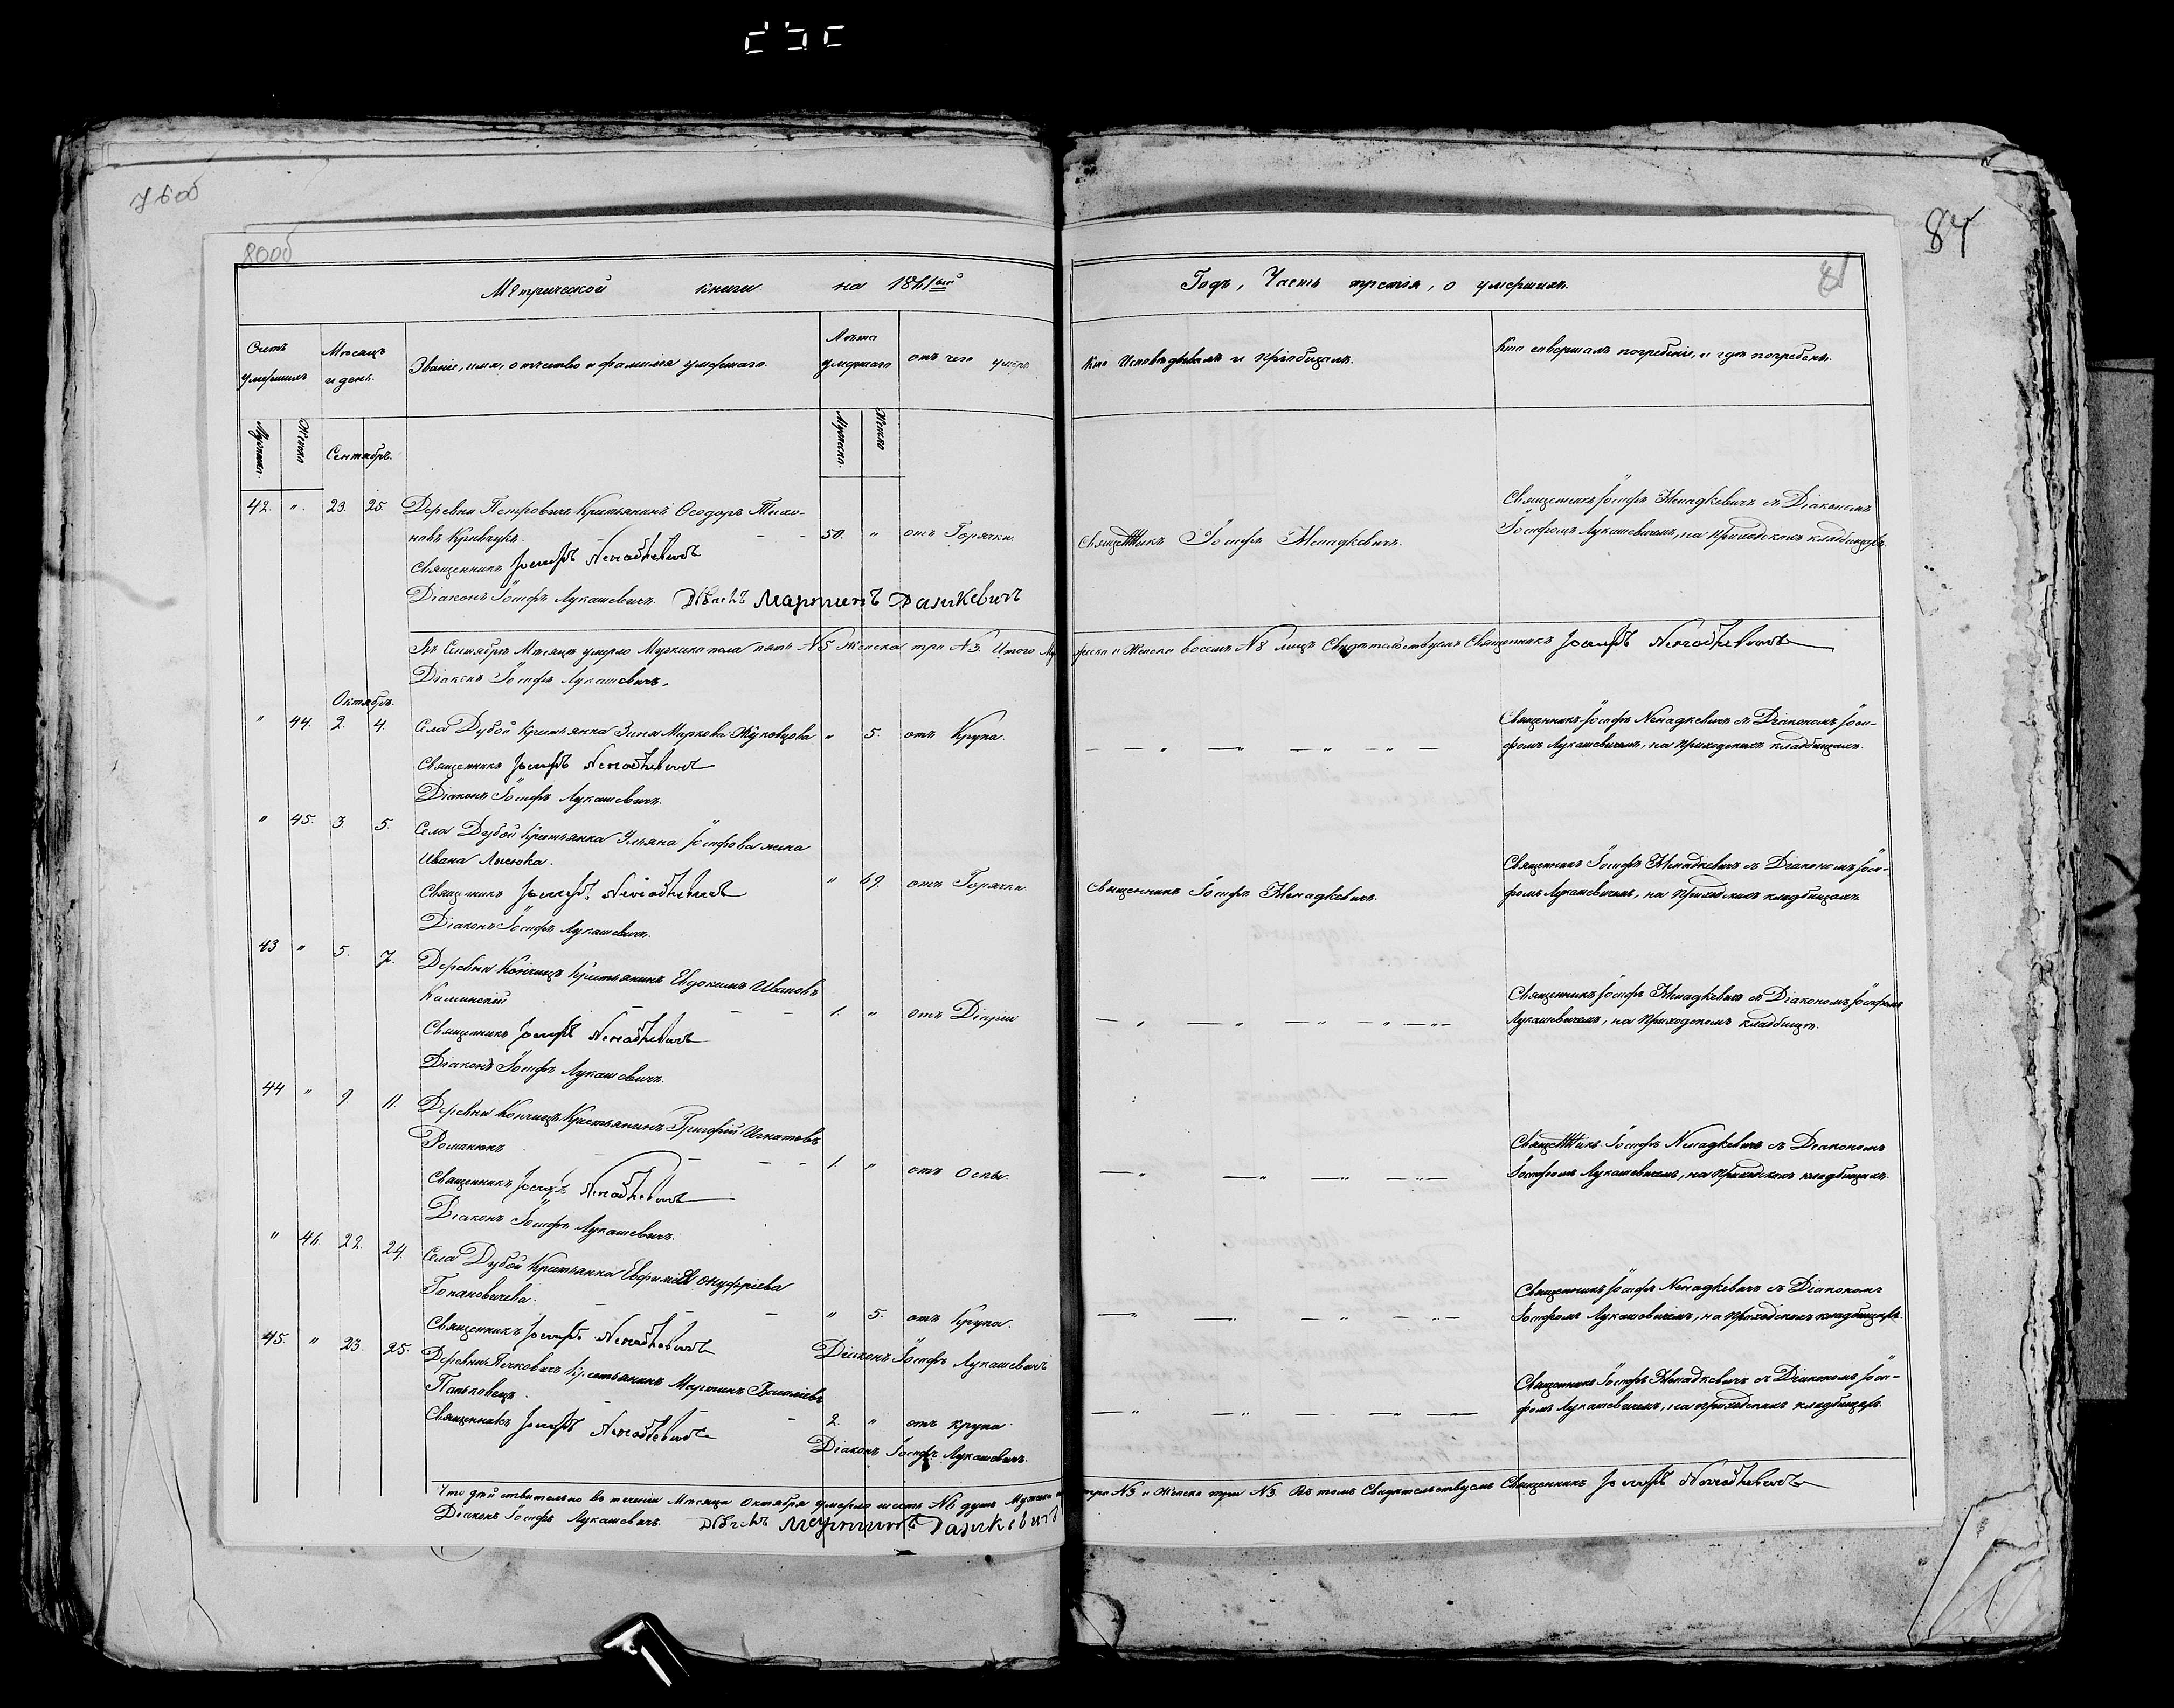 76об
80об
84
81
Метрической книги на 1861ый
Годъ, Часть третія, о умершихъ.
Счетъ умершихъ
Мѣсяцъ и день.
Званіе, имя, отчество и фамилія умершаго.
Лѣта умершаго
отъ чего умеръ
Кто Исповѣдывалъ и Пріобщалъ.
Кто совершалъ погребеніе, и гдѣ погребенъ.
Мужеска.
Женска
Сентябрь.
Мужеска.
Женска
42. " 23. 25. Деревни Петровичъ Крестьянинъ Ѳеодоръ Тихо-
новъ Кривчукъ. - - - 50. " отъ Горячки.
Священникъ Іосифъ Ненадкевичъ.
Священникъ Іосифъ Ненадкевичъ съ Діакономъ
Іосифомъ Лукашевичемъ, на Приходскомъ кладбищѣ.
Священникъ Іосифъ Ненадкевичъ
Діаконъ Іосифъ Лукашевичъ. Дьячекъ Мартинъ Данкевичъ
Въ Сентябрѣ Мѣсяцѣ умерло Мужеска пола пять N5 Женска три N3. Итого Му жеска и Женска восемь N8 лицъ Свидѣтельствуемъ Священникъ Іосифъ Ненадкевичъ
Діаконъ Іосифъ Лукашевичъ.
Октябрь.
" 44. 2. 4. Села Дубой Крестьянка Зина Маркова Жуковцова " 5. отъ Крупа.
Священникъ Іосифъ Ненадкевичъ съ Діакономъ Іоси-
фомъ Лукашевичемъ, на Приходскихъ кладбищахъ.
Священникъ Іосифъ Ненадкевичъ
Діаконъ Іосифъ Лукашевичъ.
" 45. 3. 5. Села Дубой Крестьянка Ульяна Іосифова жена
Ивана Лысюка.
" 69. отъ Горячки.
Священникъ Іосифъ Ненадкевичъ.
Священникъ Іосифъ Ненадкевичъ съ Діакономъ Іоси-
фомъ Лукашевичемъ, на Приходскихъ кладбищахъ.
Священникъ Іосифъ Ненадкевичъ
Діаконъ Іосифъ Лукашевичъ.
43 " 5. 7. Деревни Кончицъ Крестьянинъ Евдокимъ Ивановъ
Каминскій - - - 1. " отъ Діаріи
Священникъ Іосифъ Ненадкевичъ съ Діакономъ Іосифомъ
Лукашевичемъ, на Приходскомъ кладбищѣ.
Священникъ Іосифъ Ненадкевичъ
Діаконъ Іосифъ Лукашевичъ.
44 " 9. 11. Деревни Кончицъ Крестьянинъ Григорій Игнатовъ
Романюкъ - - - 1. " отъ Оспы.
Священникъ Іосифъ Ненадкевичъ съ Діакономъ
Іосифомъ Лукашевичемъ, на Приходскихъ кладбищахъ.
Священникъ Іосифъ Ненадкевичъ
Діаконъ Іосифъ Лукашевичъ.
" 46. 22. 24. Села Дубой Крестьянка Евфимія Онуфріева
- - - " 5. отъ Крупа.
Священникъ Іосифъ Ненадкевичъ съ Діакономъ
Іосифомъ Лукашевичемъ, на Приходскомъ кладбищѣ.
Священникъ Іосифъ Ненадкевичъ Діаконъ Іосифъ Лукашевичъ
45. " 23. 25. Деревни Крестьянинъ Мартинъ Василіевъ
- - - 2. " отъ крупа.
Священникъ Іосифъ Ненадкевичъ съ Діакономъ Іоси-
фомъ Лукашевичемъ, на приходскихъ кладбищахъ.
Священникъ Іосифъ Ненадкевичъ Діаконъ Іосифъ Лукашевичъ.
Что дѣйствительно въ теченіи Мѣсяца Октября умерло шесть N6 душъ Мужеска три N3 и Женска три N3. Въ томъ Свидѣтельствуемъ Священникъ Іосифъ Ненадкевичъ
Діаконъ Іосифъ Лукашевичъ. Дьячекъ Мартинъ Данкевичъ